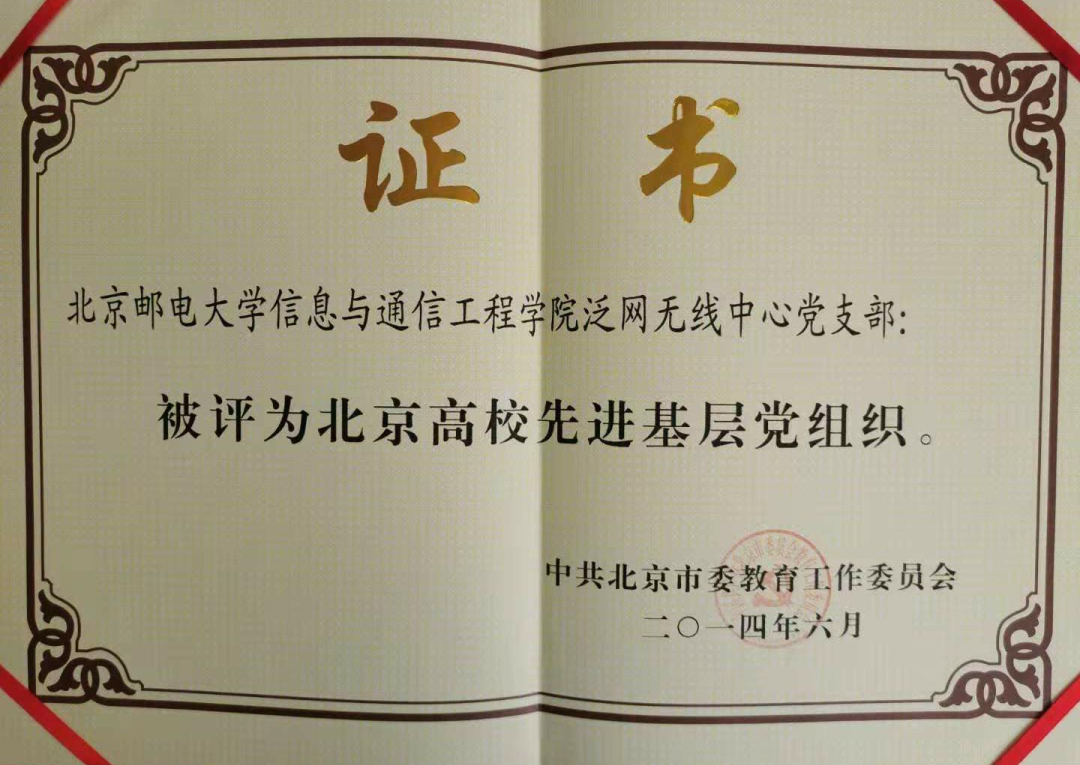 证书
北京邮电大学信息与通信工程学院泛网无线中心党支部:
被评为北京高校先进基层党组织。
中共北京市委教育工作委员会
二〇一四年六月